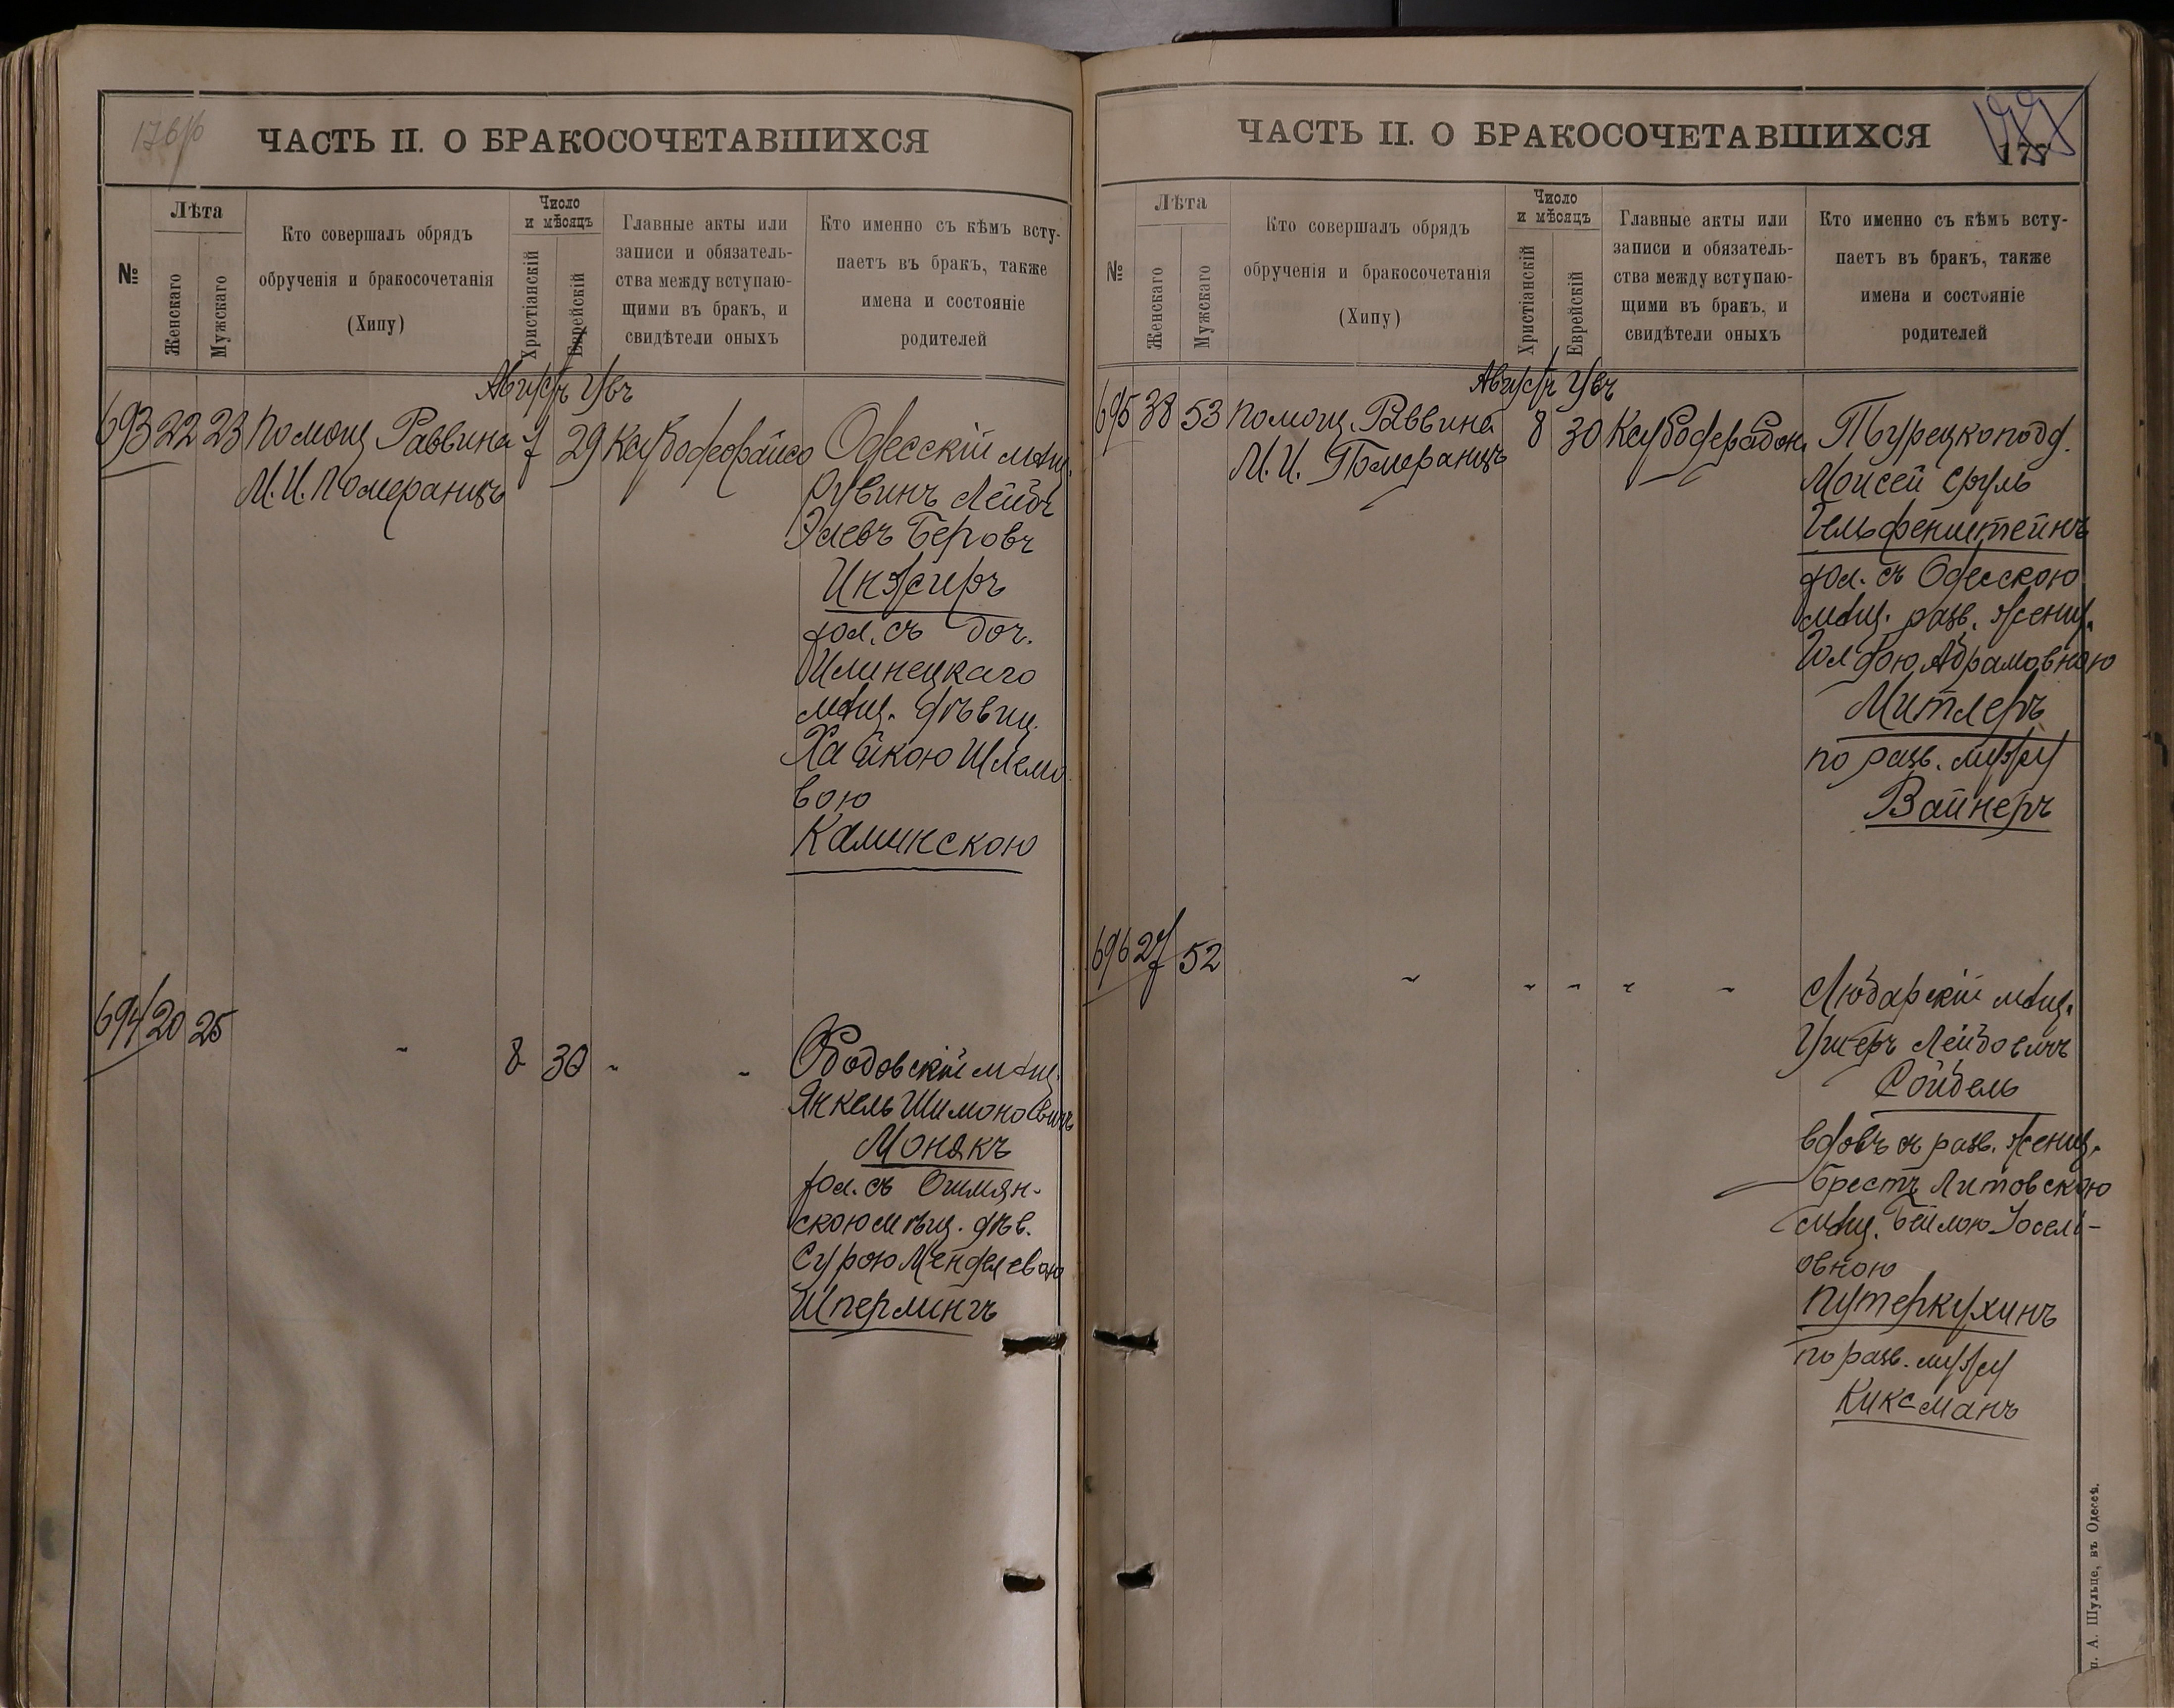 176/б
ЧАСТЬ II. О БРАКОСОЧЕТАВШИХСЯ
№
Лѣта
Женскаго
Мужскаго
Кто совершалъ обрядъ
обрученія и бракосочетанія
(Хипу)
Число
и мѣсяцъ
Христіанскій
Еврейскій
Главные акты или
записи и обязатель-
ства между вступаю-
щими въ бракъ, и
свидѣтели оныхъ
Кто именно съ кѣмъ всту-
паетъ въ бракъ, также
имена и состояніе
родителей
693 22 23 Помощ. Раввина 7 29
М. И. Померанцъ
Одесскій мѣщ.
Рувинъ Лейбъ
Беровъ
дол. съ доч.
Илинецкаго
мѣщ. дѣвиц.
Хайкою Шлемо
вою
Каминскою
694 20 25 " 8 30 " "
Ободовскій мѣщ.
Янкель Шимоновичъ
Монякъ
дол. съ Ошмян-
скою мѣщ. дѣв.
Сурою Менделевою
Шперлингъ
ЧАСТЬ II. О БРАКОСОЧЕТАВШИХСЯ
177
№
Лѣта
Женскаго
Мужскаго
Кто совершалъ обрядъ
обрученія и бракосочетанія
(Хипу)
Число
и мѣсяцъ
Христіанскій
Еврейскій
Главные акты или
записи и обязатель-
ства между вступаю-
щими въ бракъ, и
свидѣтели оныхъ
Кто именно съ кѣмъ всту-
паетъ въ бракъ, также
имена и состояніе
родителей
695 38 53 Помощ. Раввина 8 30
М. И. Померанцъ
Турецкопод.
Моисей Сруль
Гельфенштейнъ
дол. съ Одесскою
мѣщ. разв. женщ.
Голдою Абрамовною
Митлеръ
по разв. мужу
Вайнеръ
696 27 52 " " " " "
Любарскій мѣщ.
Ушеръ Лейбовичъ
Сойбель
вдовъ съ разв. женщ.
Брестъ Литовскою
мѣщ. Бейлою Іосели-
овною
Путеркухинъ
по разв. мужу
Киксманъ
А. Шульце, въ Одессѣ.